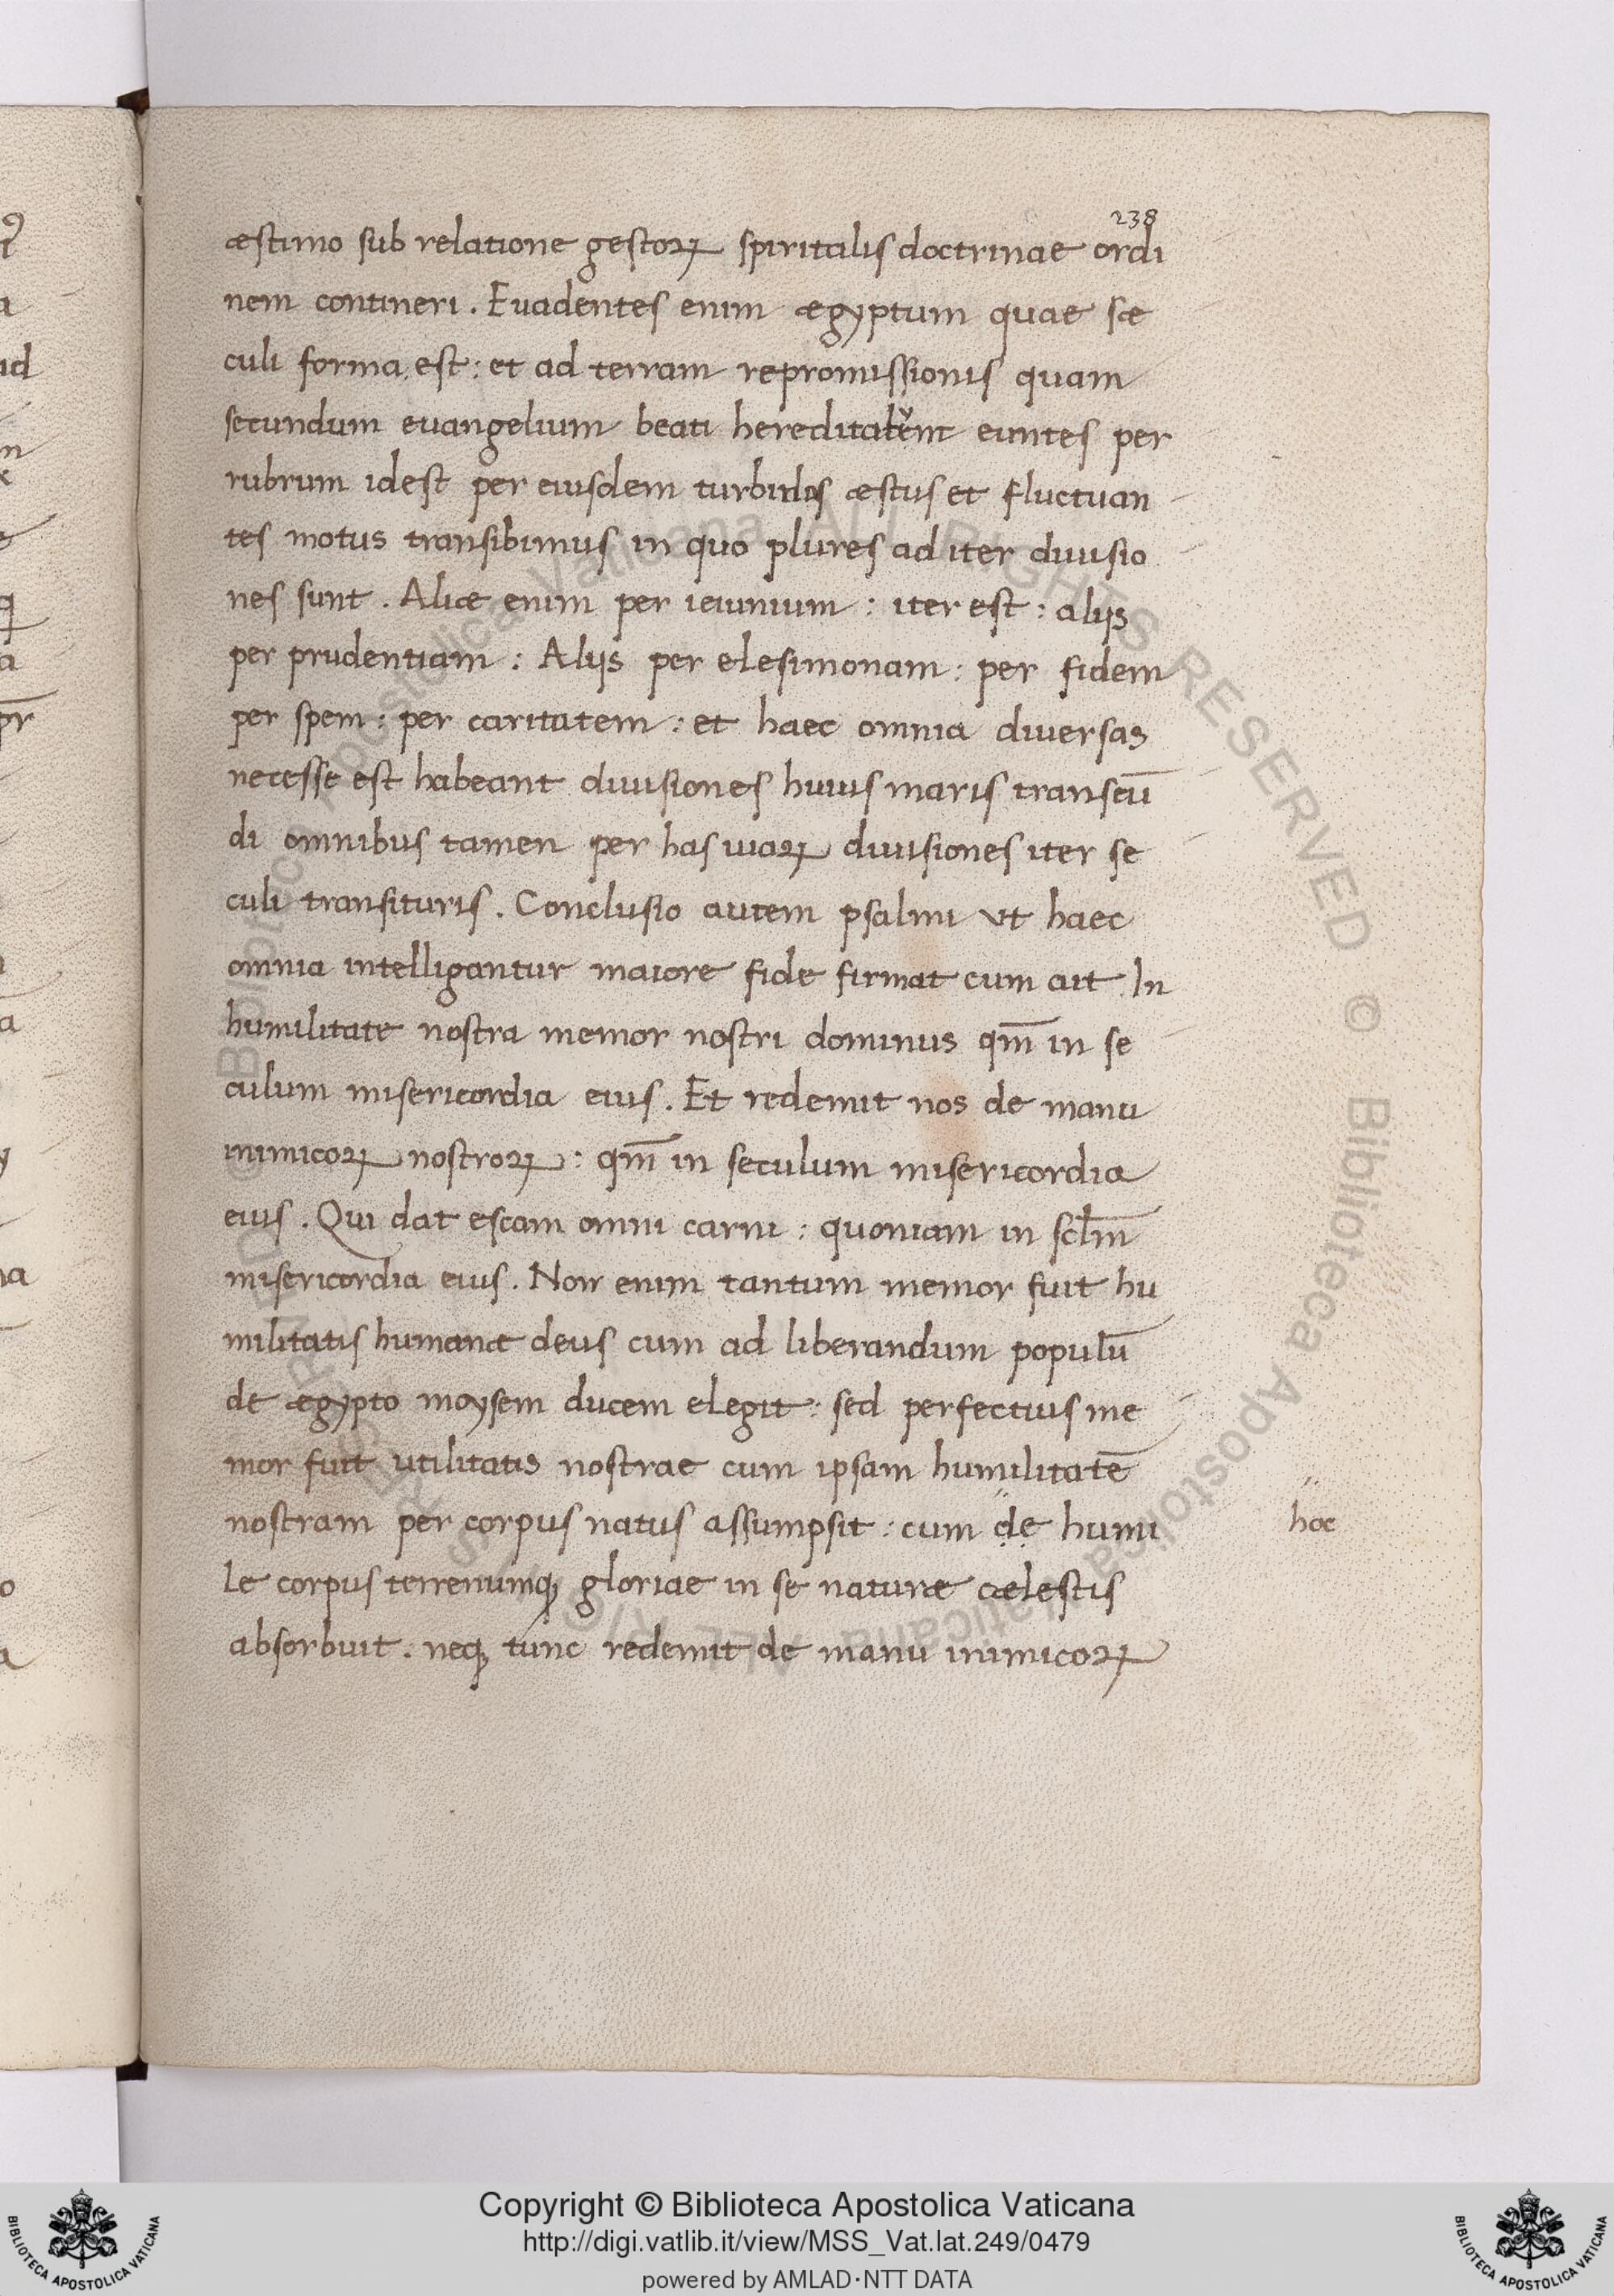 238
æstimo sub relatione gestoꝝ spiritalis doctrinae ordi
nem contineri . Euadentes enim ægyptum quae sæ
culi forma est : et ad terram repromissionis quam
secundum euangelium beati hereditabunt euntes per
rubrum idest per eiusdem turbidos æstus et fluctuan
tes motus transibimus in quo plures ad iter diuisio
nes sunt . Aliæ enim per ieiunium : iter est : alijs
per prudentiam : Alijs per elesimonam : per fidem
per spem : per caritatem : et haec omnia diuersas
necesse est habeant diuisiones huius maris transeū
di omnibus tamen per has uiaꝝ diuisiones iter se
culi transituris . Conclusio autem psalmi vt haec
omnia intelligantur maiore fide firmat cum ait In
humilitate nostra memor nostri dominus qm̄ in se
culum misericordia eius . Et redemit nos de manu
inimicoꝝ nostroꝝ : qm̄ in seculum misericordia
eius . Qui dat escam omni carni : quoniam in scl̄m
misericordia eius . Non enim tantum memor fuit hu
militatis humanæ deus cum ad liberandum populū
de ægypto moysem ducem elegit : sed perfectius me
mor fuit utilitatis nostrae cum ipsam humilitatē
nostram per corpus natus assumpsit : cum de humi
hoc
le corpus terrenumqꝫ gloriae in se naturæ cælestis
absorbuit . neqꝫ tunc redemit de manu inimicoꝝ
© Biblioteca Apostolica Vaticana ALL RIGHTS RESERVED
Copyright © Biblioteca Apostolica Vaticana
http://digi.vatlib.it/view/MSS_Vat.lat.249/0479
powered by AMLAD·NTT DATA
BIBLIOTECA APOSTOLICA VATICANA
BIBLIOTECA APOSTOLICA VATICANA